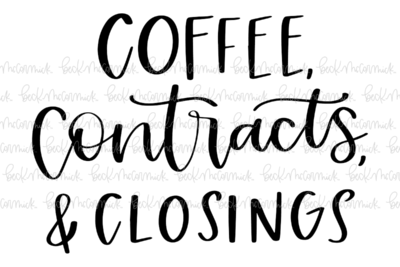 COFFEE,
Contracts,
& CLOSINGS